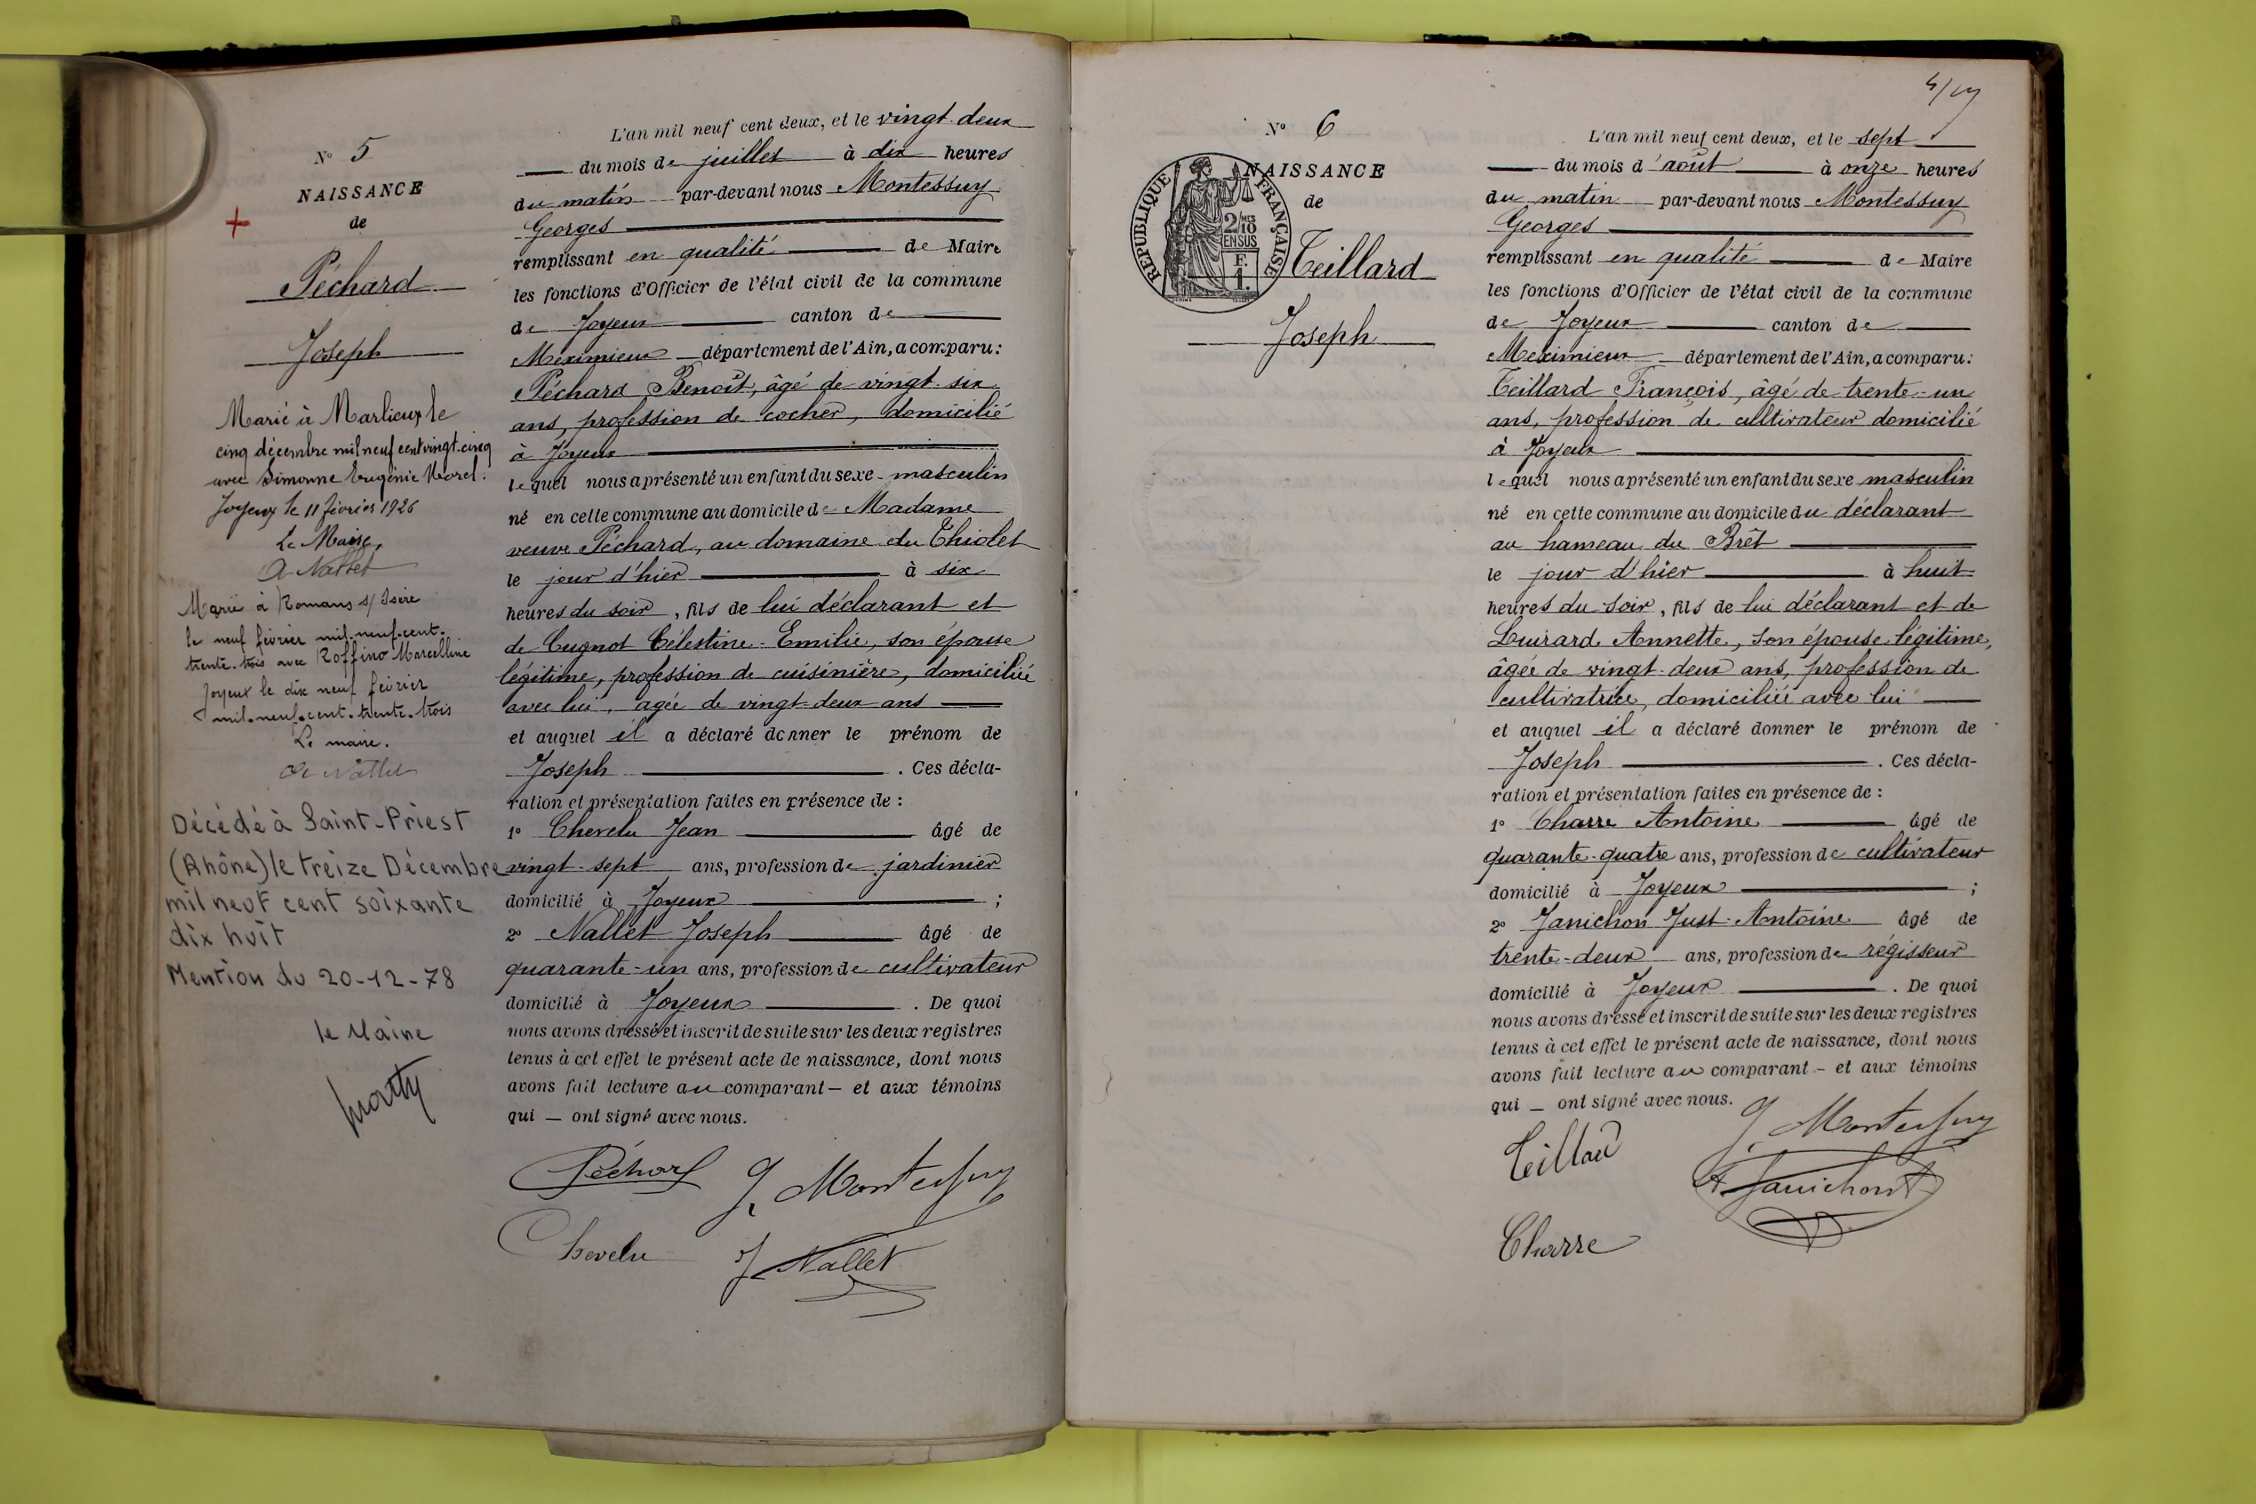 N° 5
NAISSANCE
de
Péchard
Joseph
Marié à Marlieux le
cinq décembre mil neuf cent vingt-cinq
avec Simonne Eugénie Morel.
Joyeux le 11 février 1926
Le Maire,
A Nallet
Marié à Romans s/ Isère
le neuf février mil-neuf-cent-
trente-trois avec Roffino Marcelline
Joyeux le dix neuf février
mil-neuf-cent-trente-trois
Le maire.
Décédé à Saint-Priest
(Rhône) le treize Décembre
mil neuf cent soixante
dix huit
Mention du 20-12-78
le Maire
L'an mil neuf cent deux, et le vingt-deux
du mois de juillet à dix heures
du matin par-devant nous Montessuy
Georges
remplissant en qualité de Maire
les fonctions d'Officier de l'état civil de la commune
de Joyeux canton de
Meximieux département de l'Ain, a comparu:
Péchard Benoît, âgé de vingt-six
ans, profession de cocher, domicilié
à Joyeux
lequel nous a présenté un enfant du sexe masculin
né en cette commune au domicile de Madame
veuve Péchard, au domaine du Thiolet
le jour d'hier à six
heures du soir, fils de lui déclarant et
de Cugnot Célestine-Emilie, son épouse
légitime, profession de cuisinière, domiciliée
avec lui, agée de vingt-deux ans
et auquel il a déclaré donner le prénom de
Joseph . Ces décla-
ration et présentation faites en présence de :
1° Chevelu Jean âgé de
vingt-sept ans, profession de jardinier
domicilié à Joyeux ;
2° Nallet Joseph âgé de
quarante-un ans, profession de cultivateur
domicilié à Joyeux . De quoi
nous avons dressé et inscrit de suite sur les deux registres
tenus à cet effet le présent acte de naissance, dont nous
avons fait lecture au comparant — et aux témoins
qui — ont signé avec nous.
Péchard J. Montessuy
Chevelu J Nallet
N° 6
NAISSANCE
de
RÉPUBLIQUE FRANÇAISE
2/10
EN SUS
F.
1.
Teillard
Joseph
L'an mil neuf cent deux, et le sept
du mois d'août à onze heures
du matin par-devant nous Montessuy
Georges
remplissant en qualité de Maire
les fonctions d'Officier de l'état civil de la commune
de Joyeux canton de
Meximieux département de l'Ain, a comparu:
Teillard François, âgé de trente-un
ans, profession de cultivateur domicilié
à Joyeux
lequel nous a présenté un enfant du sexe masculin
né en cette commune au domicile du déclarant
au hameau du Brêt
le jour d'hier à huit
heures du soir, fils de lui déclarant et de
Luirard Annette, son épouse légitime,
âgée de vingt-deux ans, profession de
cultivatrice, domiciliée avec lui
et auquel il a déclaré donner le prénom de
Joseph . Ces décla-
ration et présentation faites en présence de :
1° Charre Antoine âgé de
quarante-quatre ans, profession de cultivateur
domicilié à Joyeux ;
2° Janichon Just-Antoine âgé de
trente-deux ans, profession de régisseur
domicilié à Joyeux . De quoi
nous avons dressé et inscrit de suite sur les deux registres
tenus à cet effet le présent acte de naissance, dont nous
avons fait lecture au comparant — et aux témoins
qui — ont signé avec nous.
J. Montessuy
Teillard
A Janichon
Charre